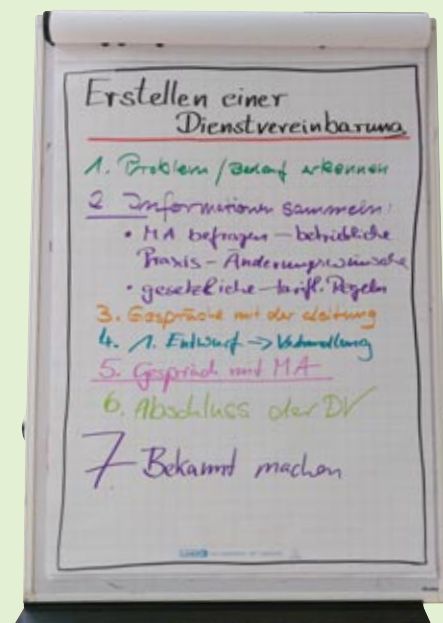 Erstellen einer
Dienstvereinbarung
1. Problem / Bedarf erkennen
2 Informationen sammeln:
• MA befragen – betriebliche
Praxis – Änderungswünsche
• gesetzliche – tarifl. Regeln
3. Gespräche mit der Leitung
4. 1. Entwurf → Verhandlung
5. Gespräch mit MA
6. Abschluss der DV
7 Bekannt machen